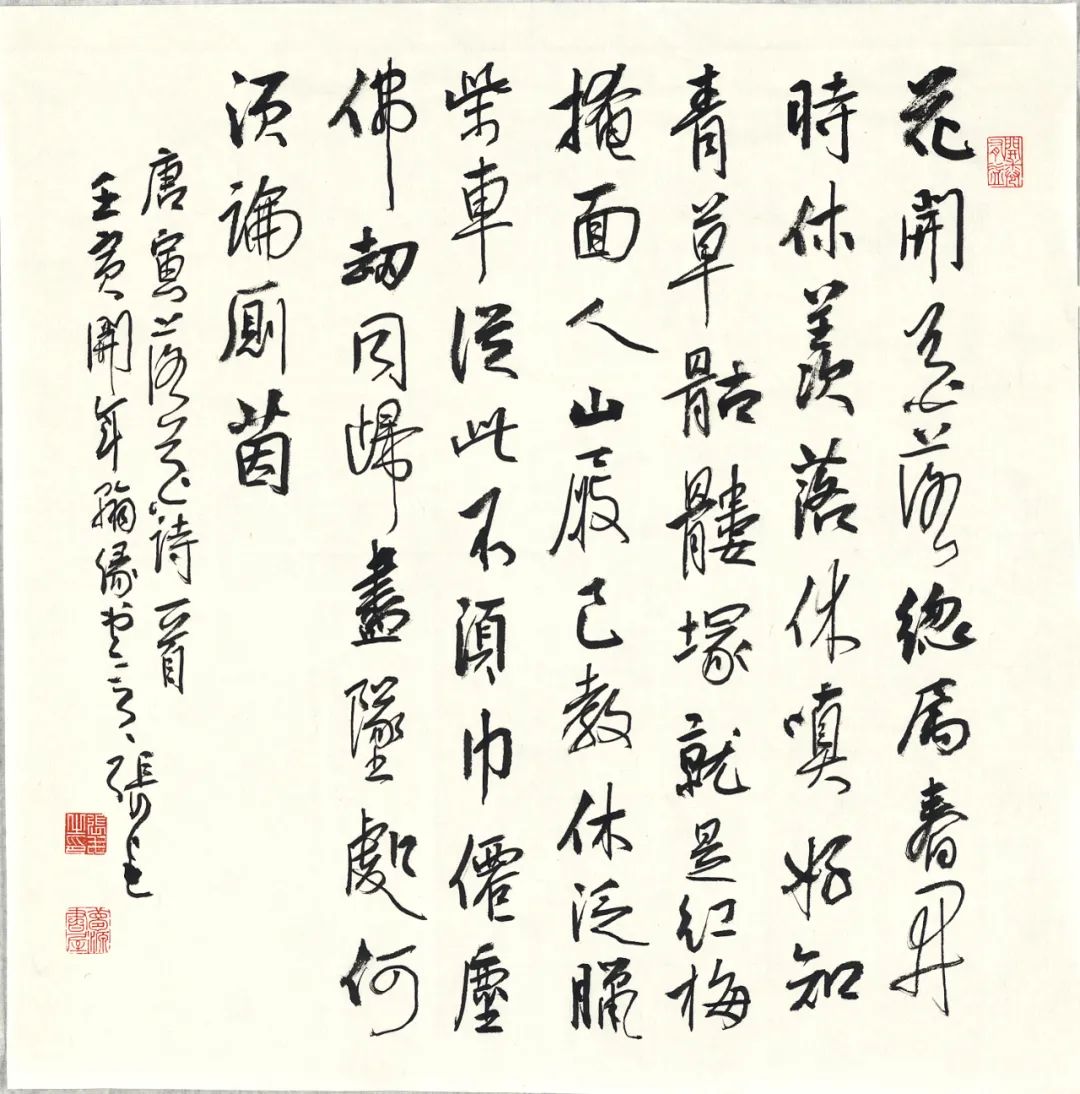 花開花落總屬春開
時休羨落休嗔好知
青草骷髏塚就是紅梅
掩面人山屐已教休泛臘
柴車從此不須巾僊塵
佛劫同歸盡墜處何
須論厠茵
唐寅落花詩一首
壬寅開年翰緣張
開卷有益